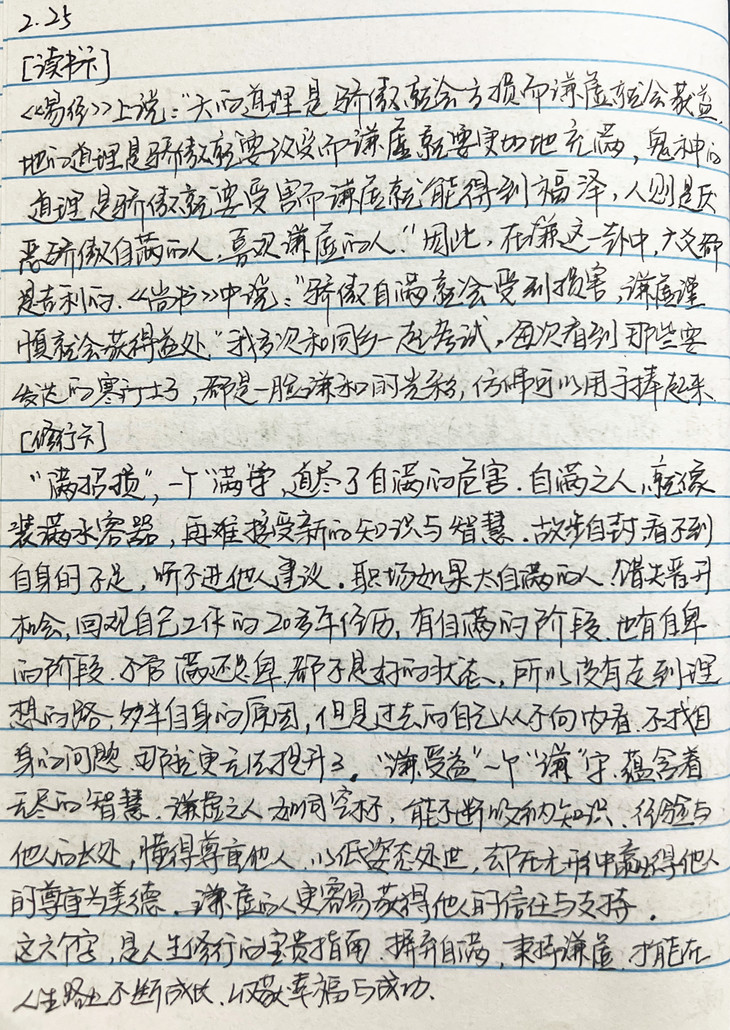 2.25
[读书卡]
《易经》上说:"天的道理是骄傲就会亏损而谦虚就会获益,
地的道理是骄傲就要改变而谦虚就要更加地充满,鬼神的
道理是骄傲就要受害而谦虚就能得到福泽,人则是厌
恶骄傲自满的人,喜欢谦虚的人."因此,在谦这一卦中,六爻都
是吉利的.《尚书》中说:"骄傲自满就会受到损害,谦虚谨
慎就会获得益处."我多次和同乡一起考试,每次看到那些要
发达的寒门士子,都是一脸谦和的光彩,仿佛可以用手捧起来.
[修行卡]
"满招损",一个"满"字,道尽了自满的危害.自满之人,就像
装满水容器,再难接受新的知识与智慧.故步自封,看不到
自身的不足,听不进他人建议.职场如果太自满的人.错失晋升
机会,回观自己工作的20多年经历,有自满的阶段.也有自卑
的阶段.不管满还是卑.都不是好的状态,所以没有走到理
想的路,多半自身的原因,但是过去的自己从不向内看.不找自
身的问题.那就更无法提升了."谦受益"一个"谦"字.蕴含着
无尽的智慧.谦虚之人如同空杯,能不断吸纳知识、经验与
他人的长处,懂得尊重他人.以低姿态处世,却在无形中赢得他人
的尊重为美德.谦虚的人更容易获得他人的信任与支持.
这六个字,是人生修行的宝贵指南.摒弃自满,秉持谦虚.才能在
人生路上不断成长.收获幸福与成功.